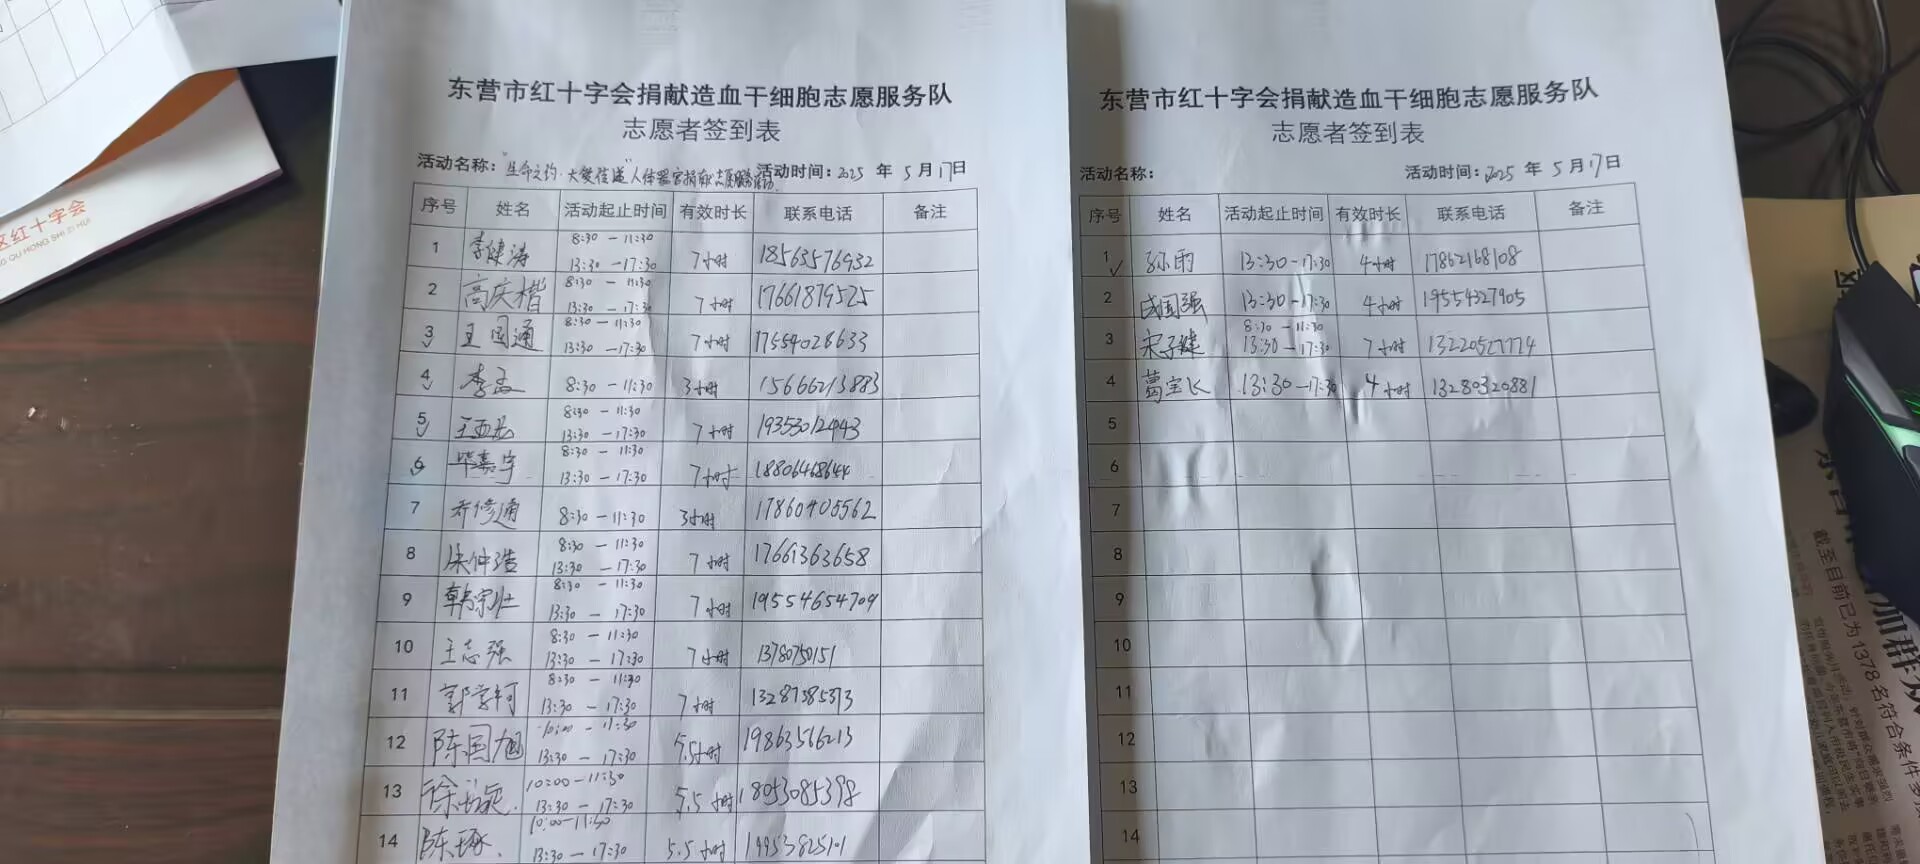 东营市红十字会捐献造血干细胞志愿服务队
志愿者签到表
活动名称："生命之约·大爱传递"人体器官捐献志愿服务活动 活动时间：2025 年 5 月 17日
序号 姓名 活动起止时间 有效时长 联系电话 备注
1 李健涛 8:30 — 11:30 13:30 — 17:30 7小时 18563576932
2 高庆楷 8:30 — 11:30 13:30 — 17:30 7小时 17661879525
3 王国通 8:30 — 11:30 13:30 — 17:30 7小时 17554028633
4 李孟 8:30 — 11:30 3小时 15666213883
5 8:30 — 11:30 13:30 — 17:30 7小时 19353012443
6 毕嘉宇 8:30 — 11:30 13:30 — 17:30 7小时 18806468644
7 乔修通 8:30 — 11:30 3小时 17860405562
8 8:30 — 11:30 13:30 — 17:30 7小时 17661363658
9 韩宗壮 8:30 — 11:30 13:30 — 17:30 7小时 19554654709
10 王志强 8:30 — 11:30 13:30 — 17:30 7小时 13780750151
11 郭学珂 8:30 — 11:30 13:30 — 17:30 7小时 13287385373
12 陈国旭 10:00 — 11:30 13:30 — 17:30 5.5小时 19863566213
13 10:00 — 11:30 13:30 — 17:30 5.5小时 18053085398
14 陈琢 10:00 — 11:30 13:30 — 17:30 5.5小时
东营市红十字会捐献造血干细胞志愿服务队
志愿者签到表
活动名称： 活动时间：2025 年 5 月 17日
序号 姓名 活动起止时间 有效时长 联系电话 备注
1 孙雨 13:30 — 17:30 4小时 17862168108
2 成国强 13:30 — 17:30 4小时 19554327905
3 宋子健 8:30 — 11:30 13:30 — 17:30 7小时 13220527724
4 葛宝长 13:30 — 17:30 4小时 13280320881
5
6
7
8
9
10
11
12
13
14
区红十字会
QU HONG SHI ZI HUI
截至目前已为1378名符合条件